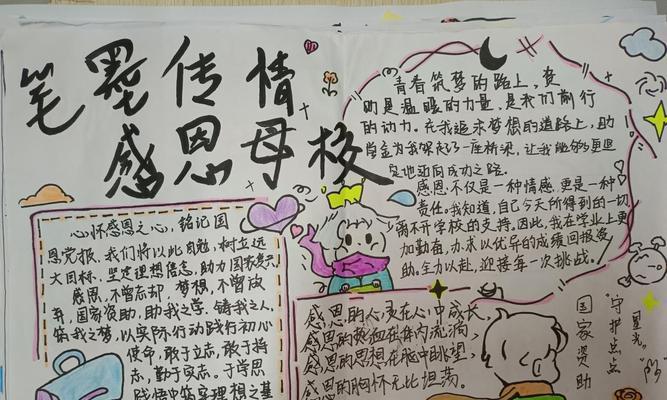 笔墨传情
感恩母校
心怀感恩之心,铭记国
恩党报,我们将以此自勉,树立远
大目标,坚定理想信念,助力国家复兴
感恩,不曾忘却,梦想,不曾放
弃,国家资助,助我之学,铸我之人,
筑我之梦,以实际行动践行初心
使命,敢于立志,敢于持
志,勤于实志。于学思
践悟中筑实理想之基
青春筑梦的路上,资
助是温暖的力量,是我们前行
的动力。在我追求梦想的道路上,助
学金为我架起了一座桥梁,让我能够更坦
感恩,不仅是一种情感,更是一种
责任。我知道,自己今天所得到的一切
离不开学校的支持。因此,我在学业上更
加勤奋,力求以优异的成绩回报资
助。全力以赴,迎接每一次挑战。
感恩的心灵在人中成长,
感恩的热血在体内流淌,
感恩的思想在脑中眺望,
感恩的胸怀无比坦荡。
国家资助
"守护点点
星光。"